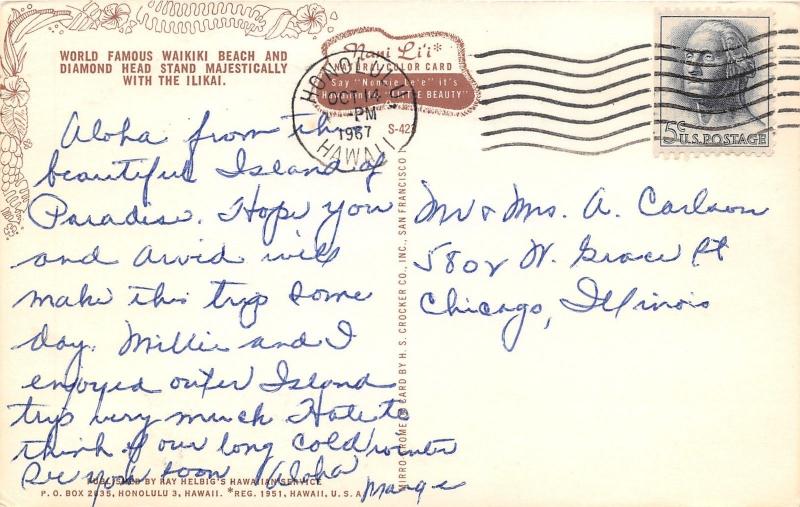 WORLD FAMOUS WAIKIKI BEACH AND
DIAMOND HEAD STAND MAJESTICALLY
WITH THE ILIKAI.
Nani Li'i*
NATURAL COLOR CARD
Say "Nonnie Le'e" it's
Hawaiian for "LITTLE BEAUTY"
S-423
HONOLULU
OCT 14
PM
1967
HAWAII
5¢
U.S. POSTAGE
Aloha from the
beautiful Island of
Paradise. Hope you
and Arvid will
make this trip some
day. Millie and I
enjoyed outer Island
trip very much Hate to
think of our long cold winter
See you soon Aloha
Marge
Mr & Mrs. A. Carlson
5802 W. Grace St
Chicago, Illinois
MIRRO-KROME CARD BY H. S. CROCKER CO., INC., SAN FRANCISCO
PUBLISHED BY RAY HELBIG'S HAWAIIAN SERVICE
P. O. BOX 2835, HONOLULU 3, HAWAII. *REG. 1951, HAWAII, U. S. A.